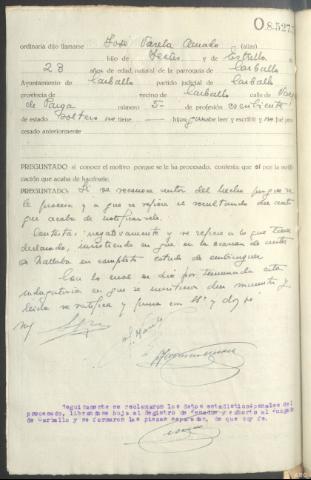 O 8.527
ordinaria dijo llamarse José Varela Amado (alias)
hijo de y de Estrella
de 23 años de edad, natural de la parroquia de Carballo
Ayuntamiento de Carballo partido judicial de Carballo
provincia de vecino de Carballo calle de
de Parga número 5- de profesión escribiente
de estado Soltero no tiene hijos, sabe leer y escribir y no fué procesado anteriormente
PREGUNTADO si conocer el motivo porque se le ha procesado, contesta que sí por la notificación que acaba de hacérsele.
PREGUNTADO: Si se reconoce autor del hecho porque se
le procesa y a que se refiere el resultando del auto
que acaba de notificársele.
Contesta: negativamente y se refiere a lo que tiene
declarado, insistiendo en que en la ocasión de autos
se hallaba en completo estado de embriaguez.
Con lo cual se dió por terminada esta
indagatoria en que se invirtieron diez minutos y
leída se ratifica y firma con Sª y doy fe
Seguidamente se reclamaron los datos estadístico-penales del
procesado, librándose hoja al Registro de Penados y exhorto al Juzgado
de Carballo y se formaron las piezas separadas, de que doy fe.